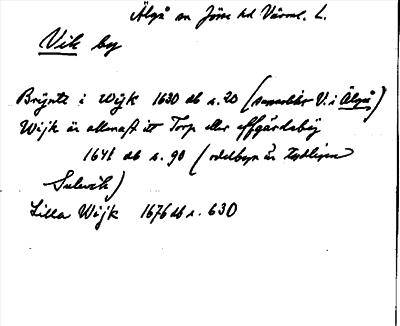 Älgå sn Jösse hd Värml. L.
Vik by
Brynte i Wijk 1630 db s. 20 (sannolikt V. i Älgå)
Wijk är allenast itt Torp eller affgärdaby
1641 db s. 90 (odelbyn är tydligen
Sulevik)
Lilla Wijk 1676 db s. 630